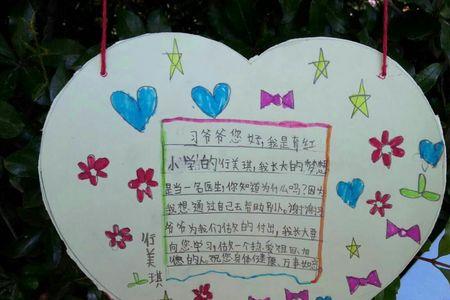 习爷爷您好,我是育红
小学的行美琪,我长大的梦想
是当一名医生,你知道为什么吗?因为
我想通过自己去帮助别人,谢谢习
爷爷为我们做的付出,我长大要
向您学习,做一个热爱祖国
的人,祝您身体健康、万事如意
行美琪